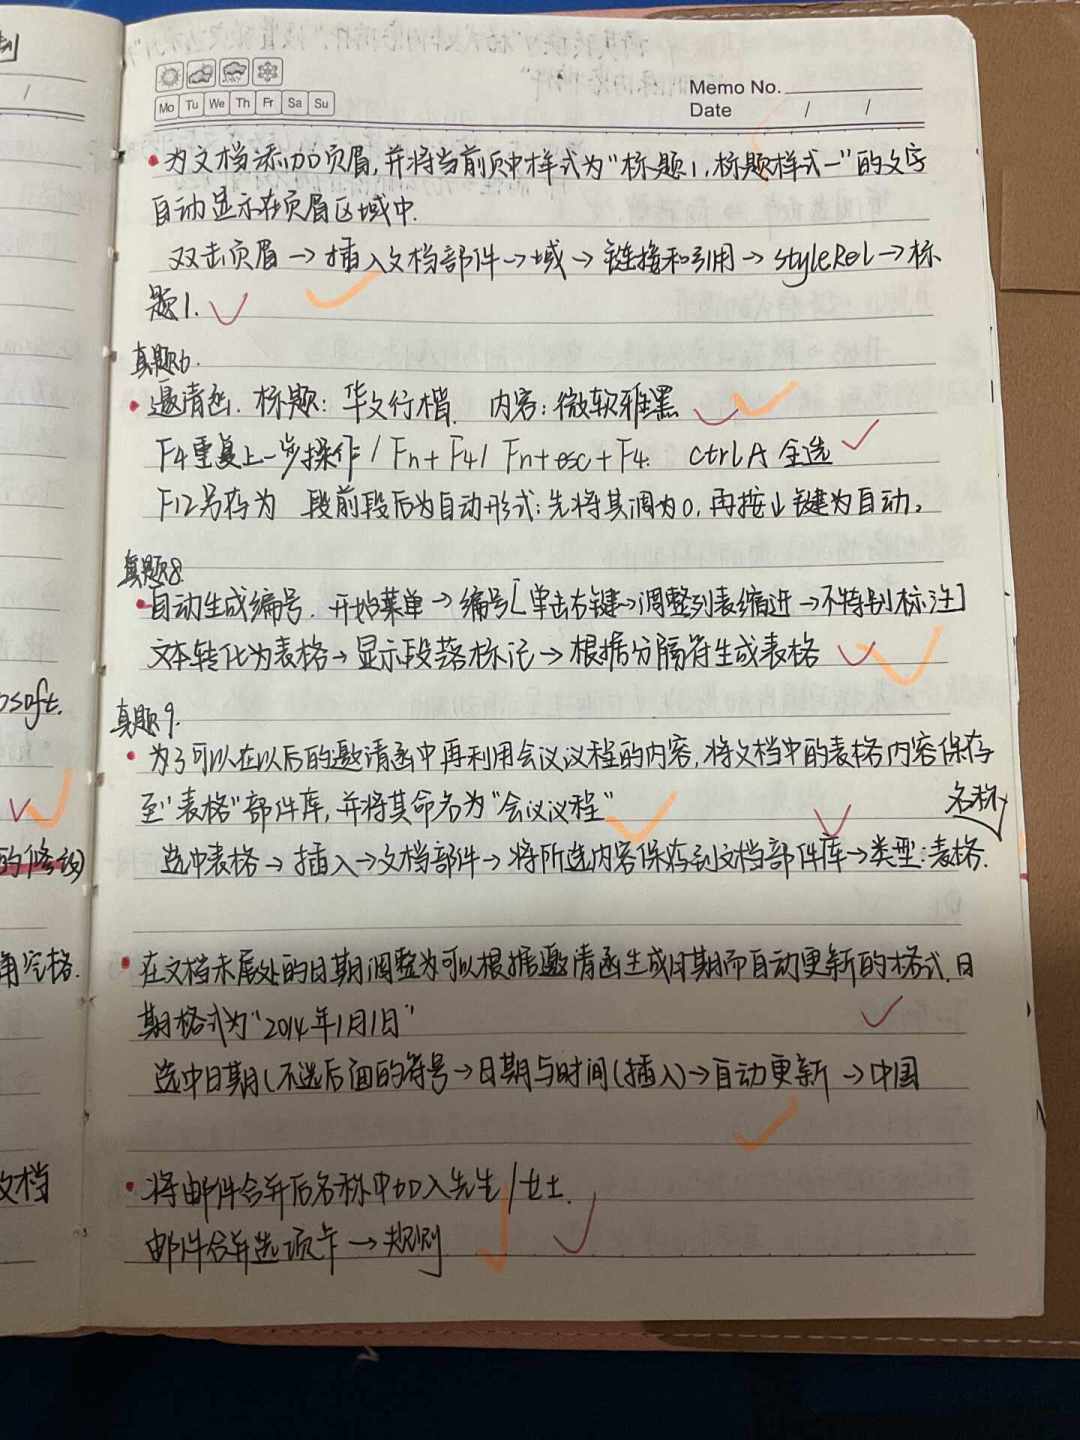 Memo No.
Mo Tu We Th Fr Sa Su
Date / /
•为文档添加页眉,并将当前页中样式为"标题1,标题样式一"的文字
自动显示在页眉区域中.
双击页眉→插入文档部件→域→链接和引用→styleRel→标
题1.
真题6.
•邀请函. 标题: 华文行楷. 内容:微软雅黑
F4重复上一步操作 / Fn+F4 / Fn+esc+F4. ctrlA 全选
F12另存为 段前段后为自动形式:先将其调为0,再按↓键为自动。
真题8
•自动生成编号. 开始菜单→编号[单击右键→调整列表缩进→不特别标注]
文本转化为表格→显示段落标记→根据分隔符生成表格
真题9.
•为了可以在以后的邀请函中再利用会议议程的内容,将文档中的表格内容保存
至"表格"部件库,并将其命名为"会议议程"
名称
选中表格→插入→文档部件→将所选内容保存到文档部件库→类型:表格.
•在文档末尾处的日期调整为可以根据邀请函生成日期而自动更新的格式.日
期格式为"2014年1月1日"
选中日期(不选后面的符号→日期与时间(插入)→自动更新→中国
•将邮件合并后名称中加入先生/女士.
邮件合并选项卡→规则
osoft.
的修改)
角空格.
文档